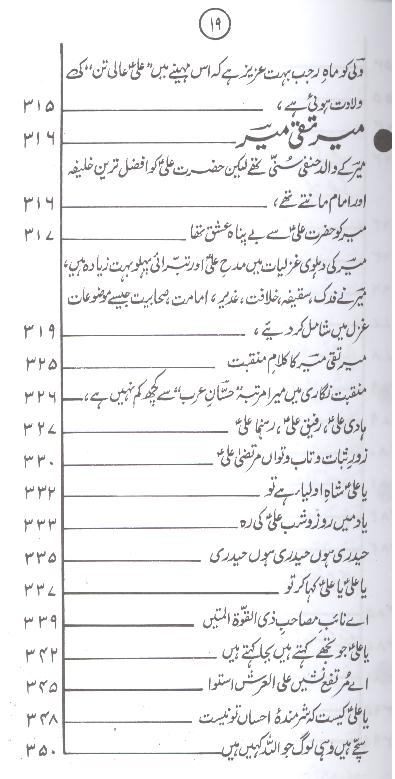 ۱۹
ولی کو ماہِ رجب بہت عزیز ہے کہ اس مہینے میں "علیؑ عالی تن" کی
ولادت ہوئی ہے، ۳۱۵
میر تقی میر ۳۱۶
میر کے والد حنفی سنی تھے لیکن حضرت علیؑ کو افضل ترین خلیفہ
اور امام مانتے تھے، ۳۱۶
میر کو حضرت علیؑ سے بے پناہ عشق تھا ۳۱۷
میر کی دہلوی غزلیات میں مدح علیؑ اور تبرّائی پہلو بہت زیادہ ہیں،
میر نے فدک، سقیفہ، خلافت، غدیر، امامت، صحابیت جیسے موضوعات
غزل میں شامل کر دیئے، ۳۱۹
میر تقی میر کا کلامِ منقبت ۳۲۵
منقبت نگاری میں میرا مرتبہ "حسّانِ عرب" سے کچھ کم نہیں ہے، ۳۲۶
ہادی علیؑ، رفیق علیؑ، رہنما علیؑ ۳۲۷
زورِ ثبات و تاب و تواں مرتضیٰ علیؑ ۳۳۰
یا علیؑ شاہِ اولیا ہے تو ۳۳۲
یاد میں روز و شب علیؑ کی رہ ۳۳۳
حیدری ہوں حیدری ہوں حیدری ۳۳۵
یا علیؑ یا علیؑ کہا کر تو ۳۳۷
اے نائبِ مصاحبِ ذی القوّۃ المتیں ۳۳۹
یا علیؑ جو تجھے کہتے ہیں بجا کہتے ہیں ۳۴۲
اے مرتفع نشیں علی العرش استوا ۳۴۵
یا علیؑ کیست کہ شرمندۂ احساں تو نیست ۳۴۸
سچے ہیں وہی لوگ جو اللہ کہیں ہیں ۳۵۰